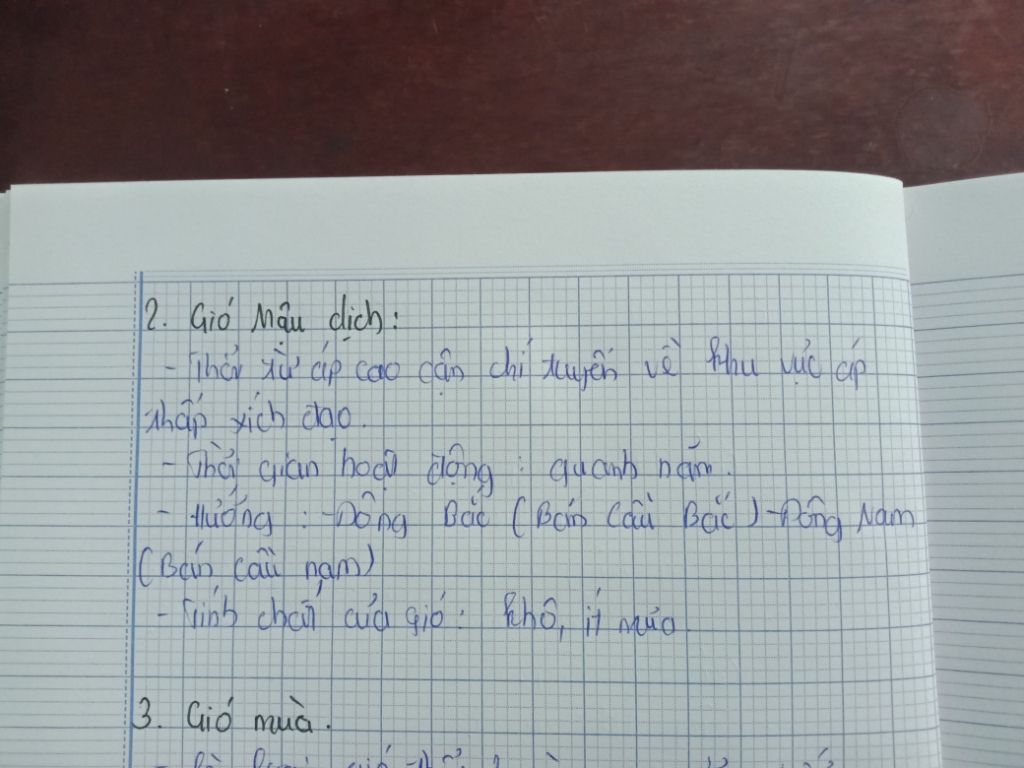 2. Gió Mậu dịch:
- Thổi từ áp cao cận chí tuyến về khu vực áp
thấp xích đạo.
- Thời gian hoạt động : quanh năm.
- Hướng : - Đông Bắc (Bán Cầu Bắc) - Đông Nam
(Bán cầu nam)
- Tính chất của gió : khô, ít mưa
3. Gió mùa.